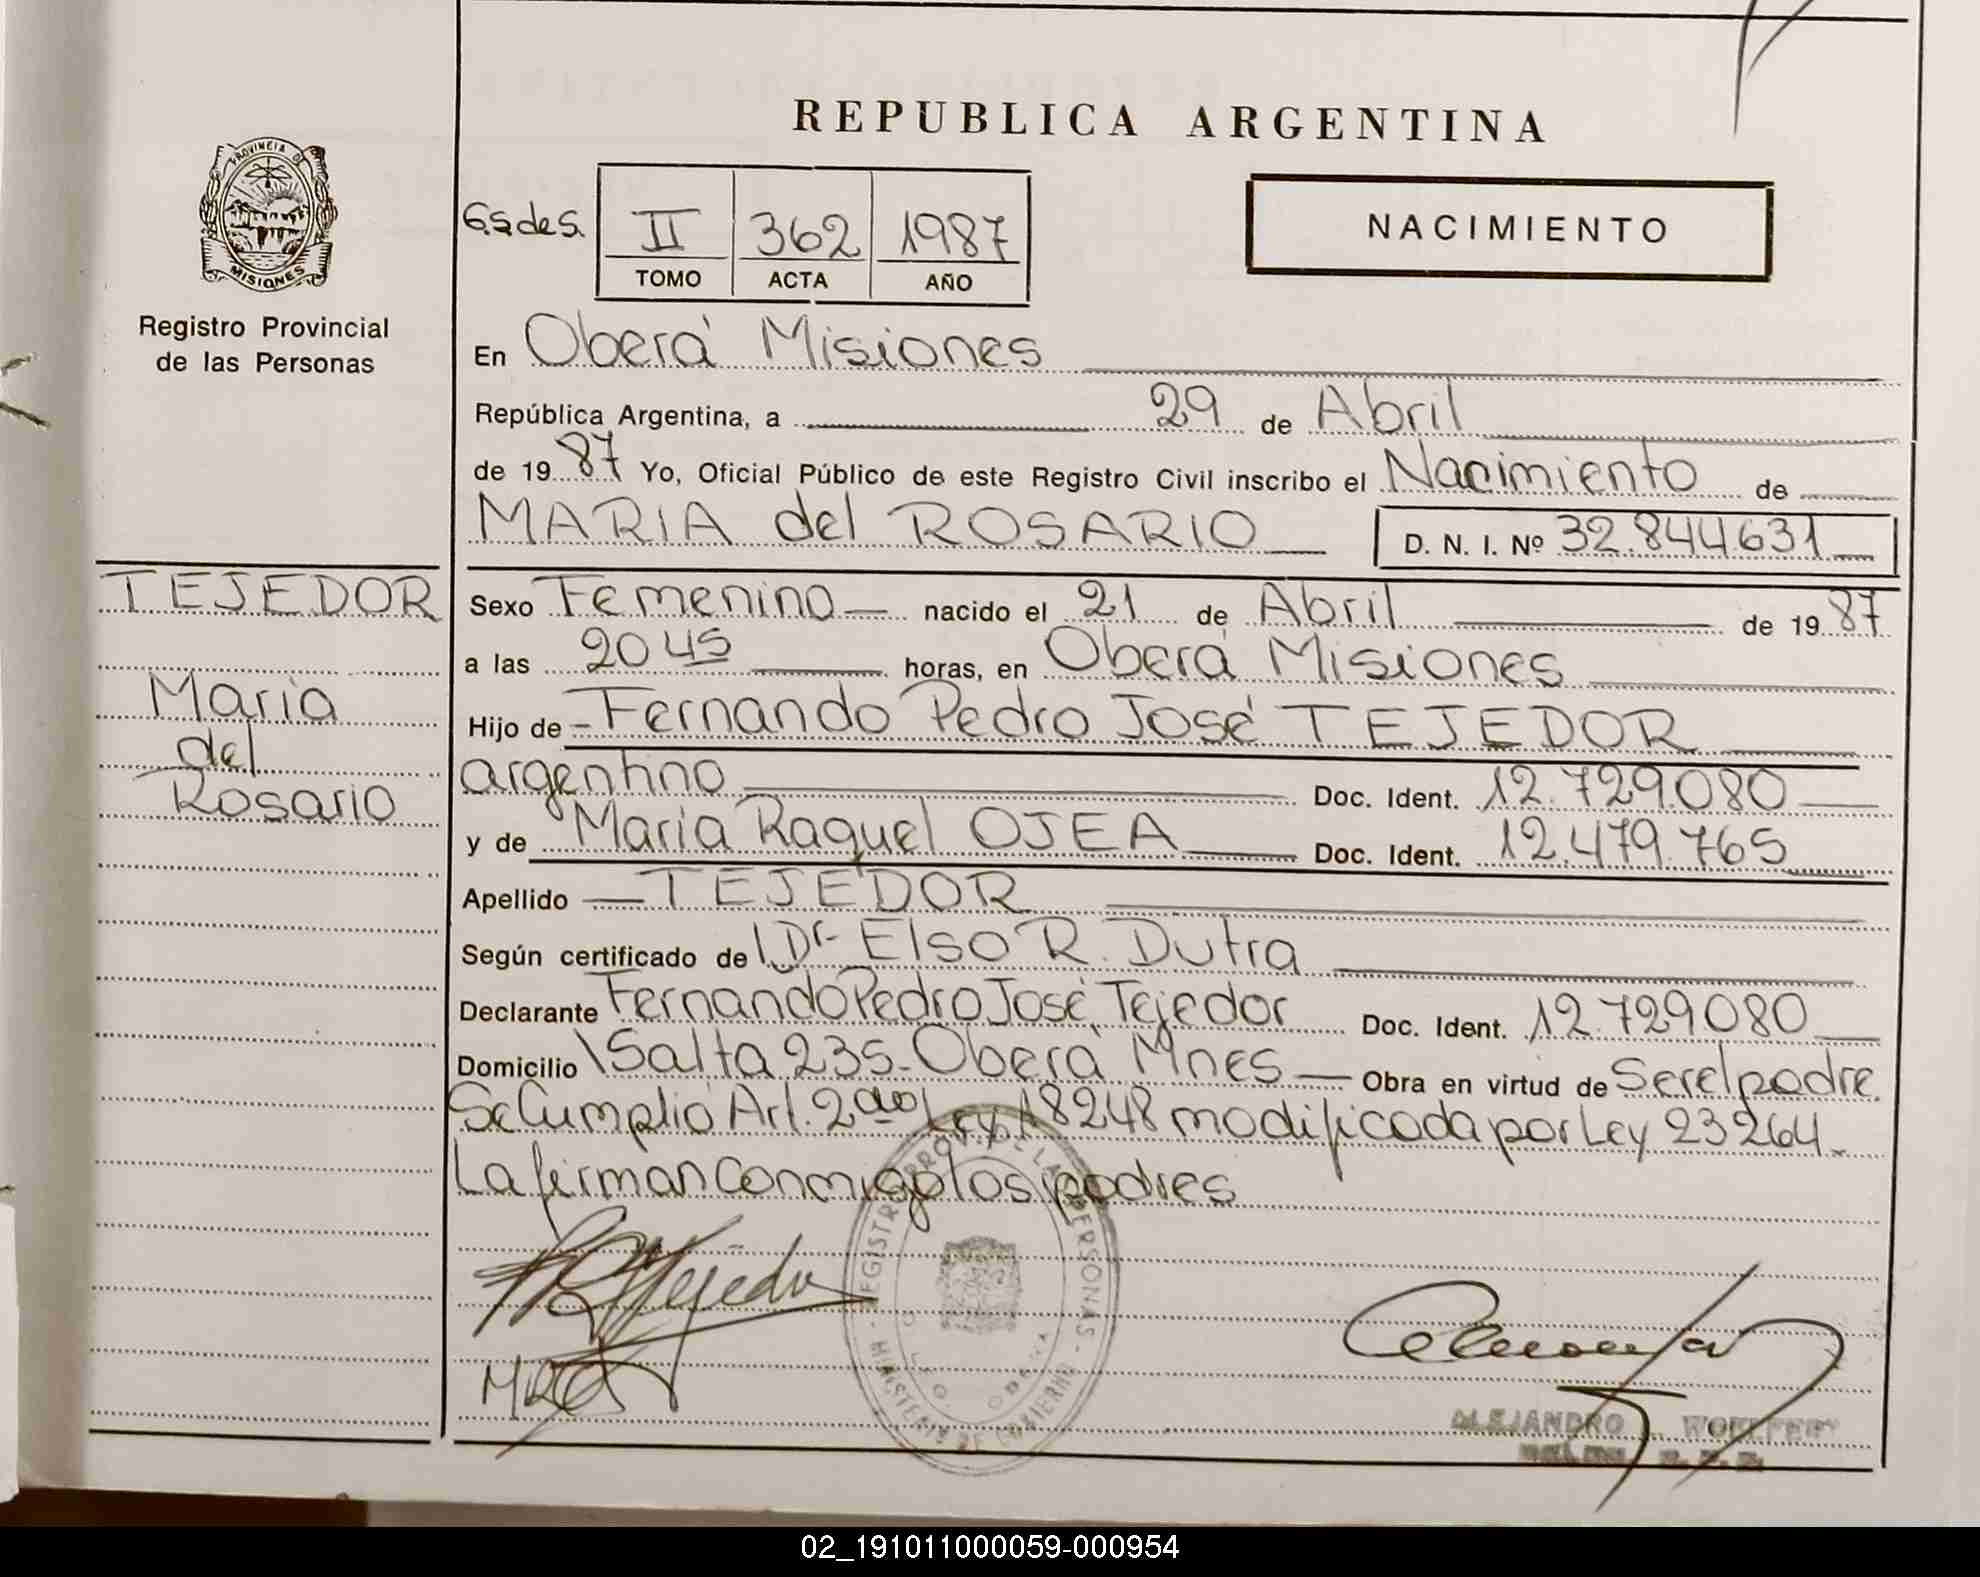 REPUBLICA ARGENTINA
PROVINCIA DE
MISIONES
Registro Provincial
de las Personas
II 362 1987
TOMO ACTA AÑO
NACIMIENTO
En Oberá Misiones
República Argentina, a 29 de Abril
de 1987 Yo, Oficial Público de este Registro Civil inscribo el Nacimiento de
MARIA del ROSARIO D. N. I. Nº 32.844631
TEJEDOR
María
del
Rosario
Sexo Femenino nacido el 21 de Abril de 1987
a las 20 45 horas, en Oberá Misiones
Hijo de Fernando Pedro José TEJEDOR
argentino Doc. Ident. 12.729.080
y de María Raquel OJEA Doc. Ident. 12.479.765
Apellido TEJEDOR
Según certificado de Dr Elso R. Dutra
Declarante Fernando Pedro José Tejedor Doc. Ident. 12.729080
Domicilio Salta 235-Oberá Mnes Obra en virtud de Ser el padre.
Se Cumplió Art. 2do Ley 18248 modificada por Ley 23264.
La firman Conmigo los padres
REGISTRO PROV. DE LAS PERSONAS - MINISTERIO DE GOBIERNO
Tejedor
ALEJANDRO
02_191011000059-000954